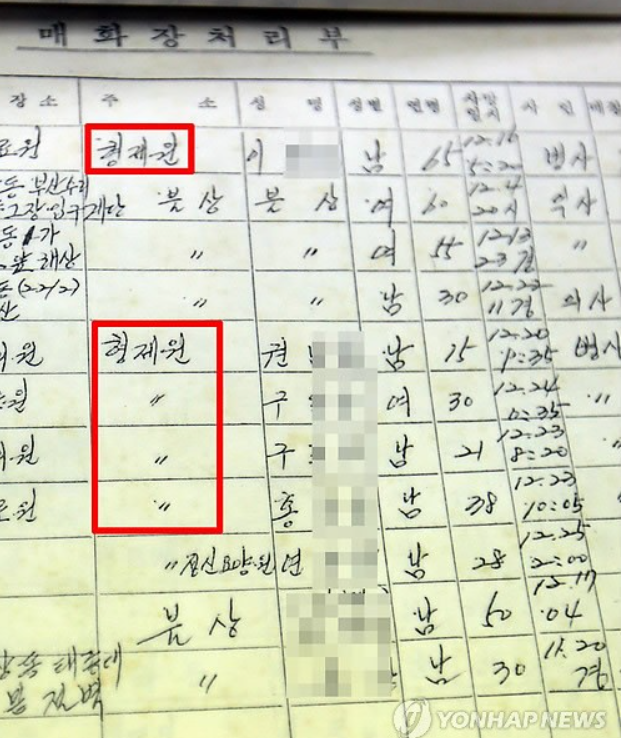 매화장처리부
장소 주 소 성 명 성별 연령 사망일시 사인
료원 형제원 이 남 65 12.16 5:20 병사
부산수리 입구계단 불상 불상 여 60 12.4 20시 익사
해상 〃 〃 여 55 12.13 23경 〃
동(22/2) 산 〃 〃 남 30 12.22 11경 의사
의원 형제원 권 남 75 12.20 9:35 병사
원 〃 구 여 30 12.24 0:35 〃
의원 〃 구 남 21 12.23 8:20 〃
료원 〃 홍 남 38 12.23 10:05
〃정신요양원 남 28 12.25 2:00
불상 남 50 12.17 04
태종대 절벽 〃 남 30 11.20 경
YONHAP NEWS